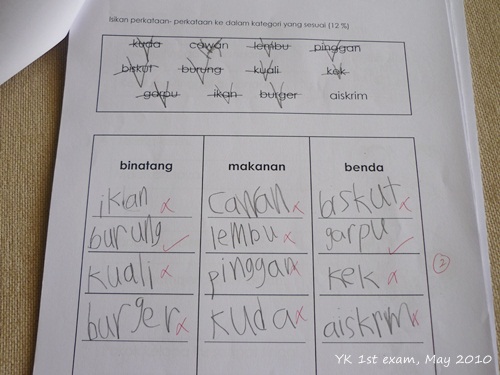 Isikan perkataan- perkataan ke dalam kategori yang sesuai (12 %)
kuda cawan lembu pinggan
biskut burung kuali kek
garpu ikan burger aiskrim
binatang makanan benda
ikan cawan biskut
burung lembu garpu
kuali pinggan kek
burger kuda aiskrm
2
YK 1st exam, May 2010